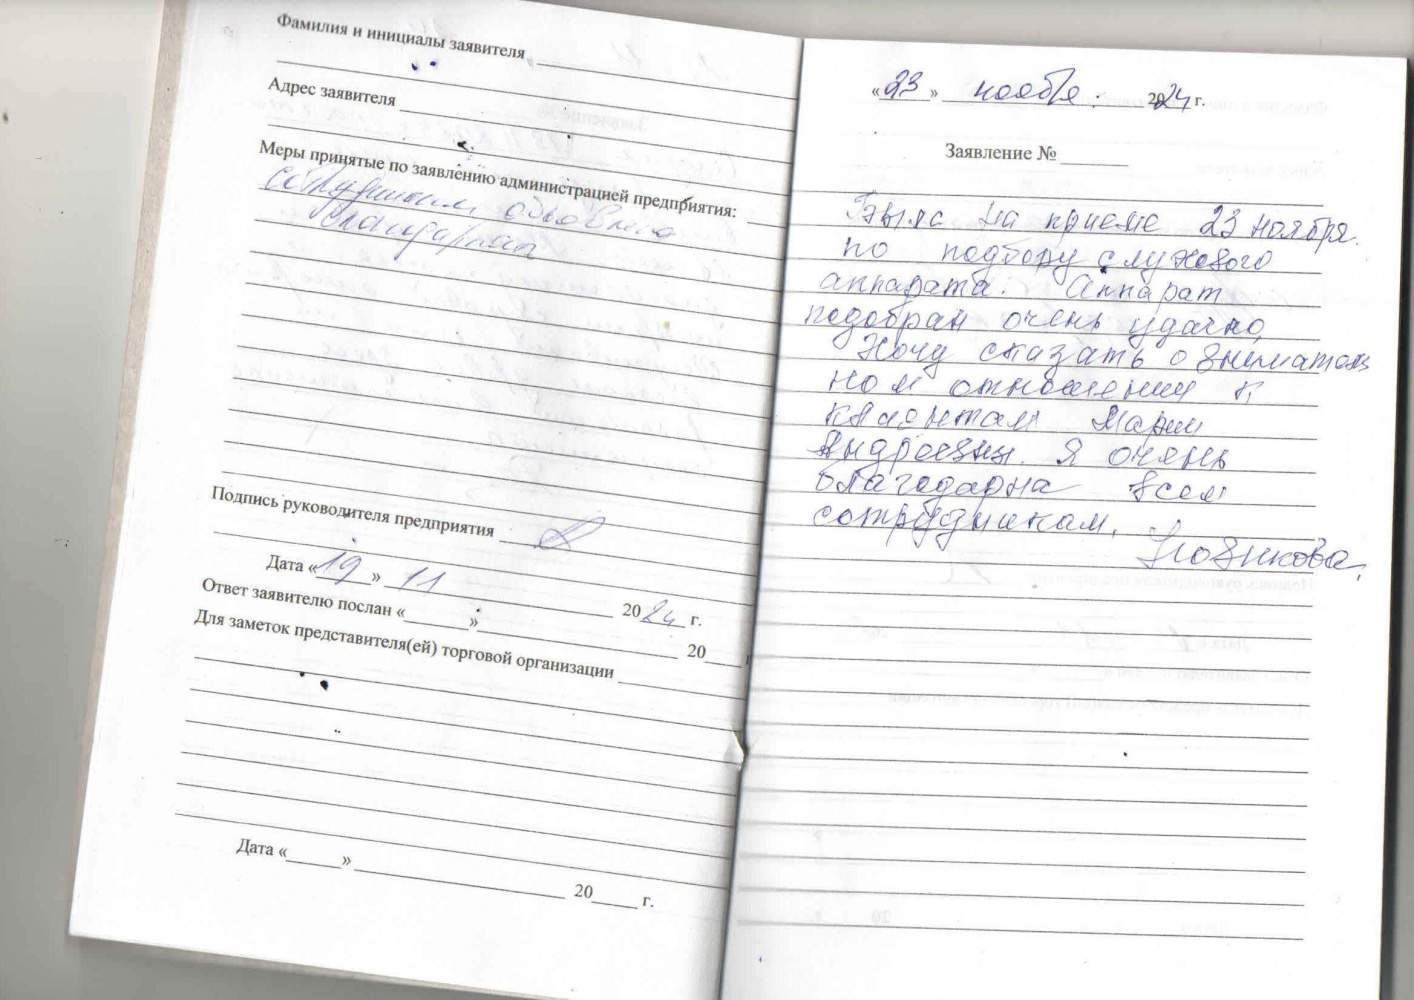 Фамилия и инициалы заявителя
Адрес заявителя
Меры принятые по заявлению администрацией предприятия:
сотрудникам объявлена
благодарность
Подпись руководителя предприятия
Дата «19» 11 2024 г.
Ответ заявителю послан « » 20 г
Для заметок представителя(ей) торговой организации
Дата « » 20 г.
«23» ноября 2024 г.
Заявление №
Была на приеме 23 ноября.
по подбору слухового
аппарата. Аппарат
подобран очень удачно,
Хочу сказать о вниматель
ном отношении к
клиентам Марии
Андреевны. Я очень
благодарна всем
сотрудникам.